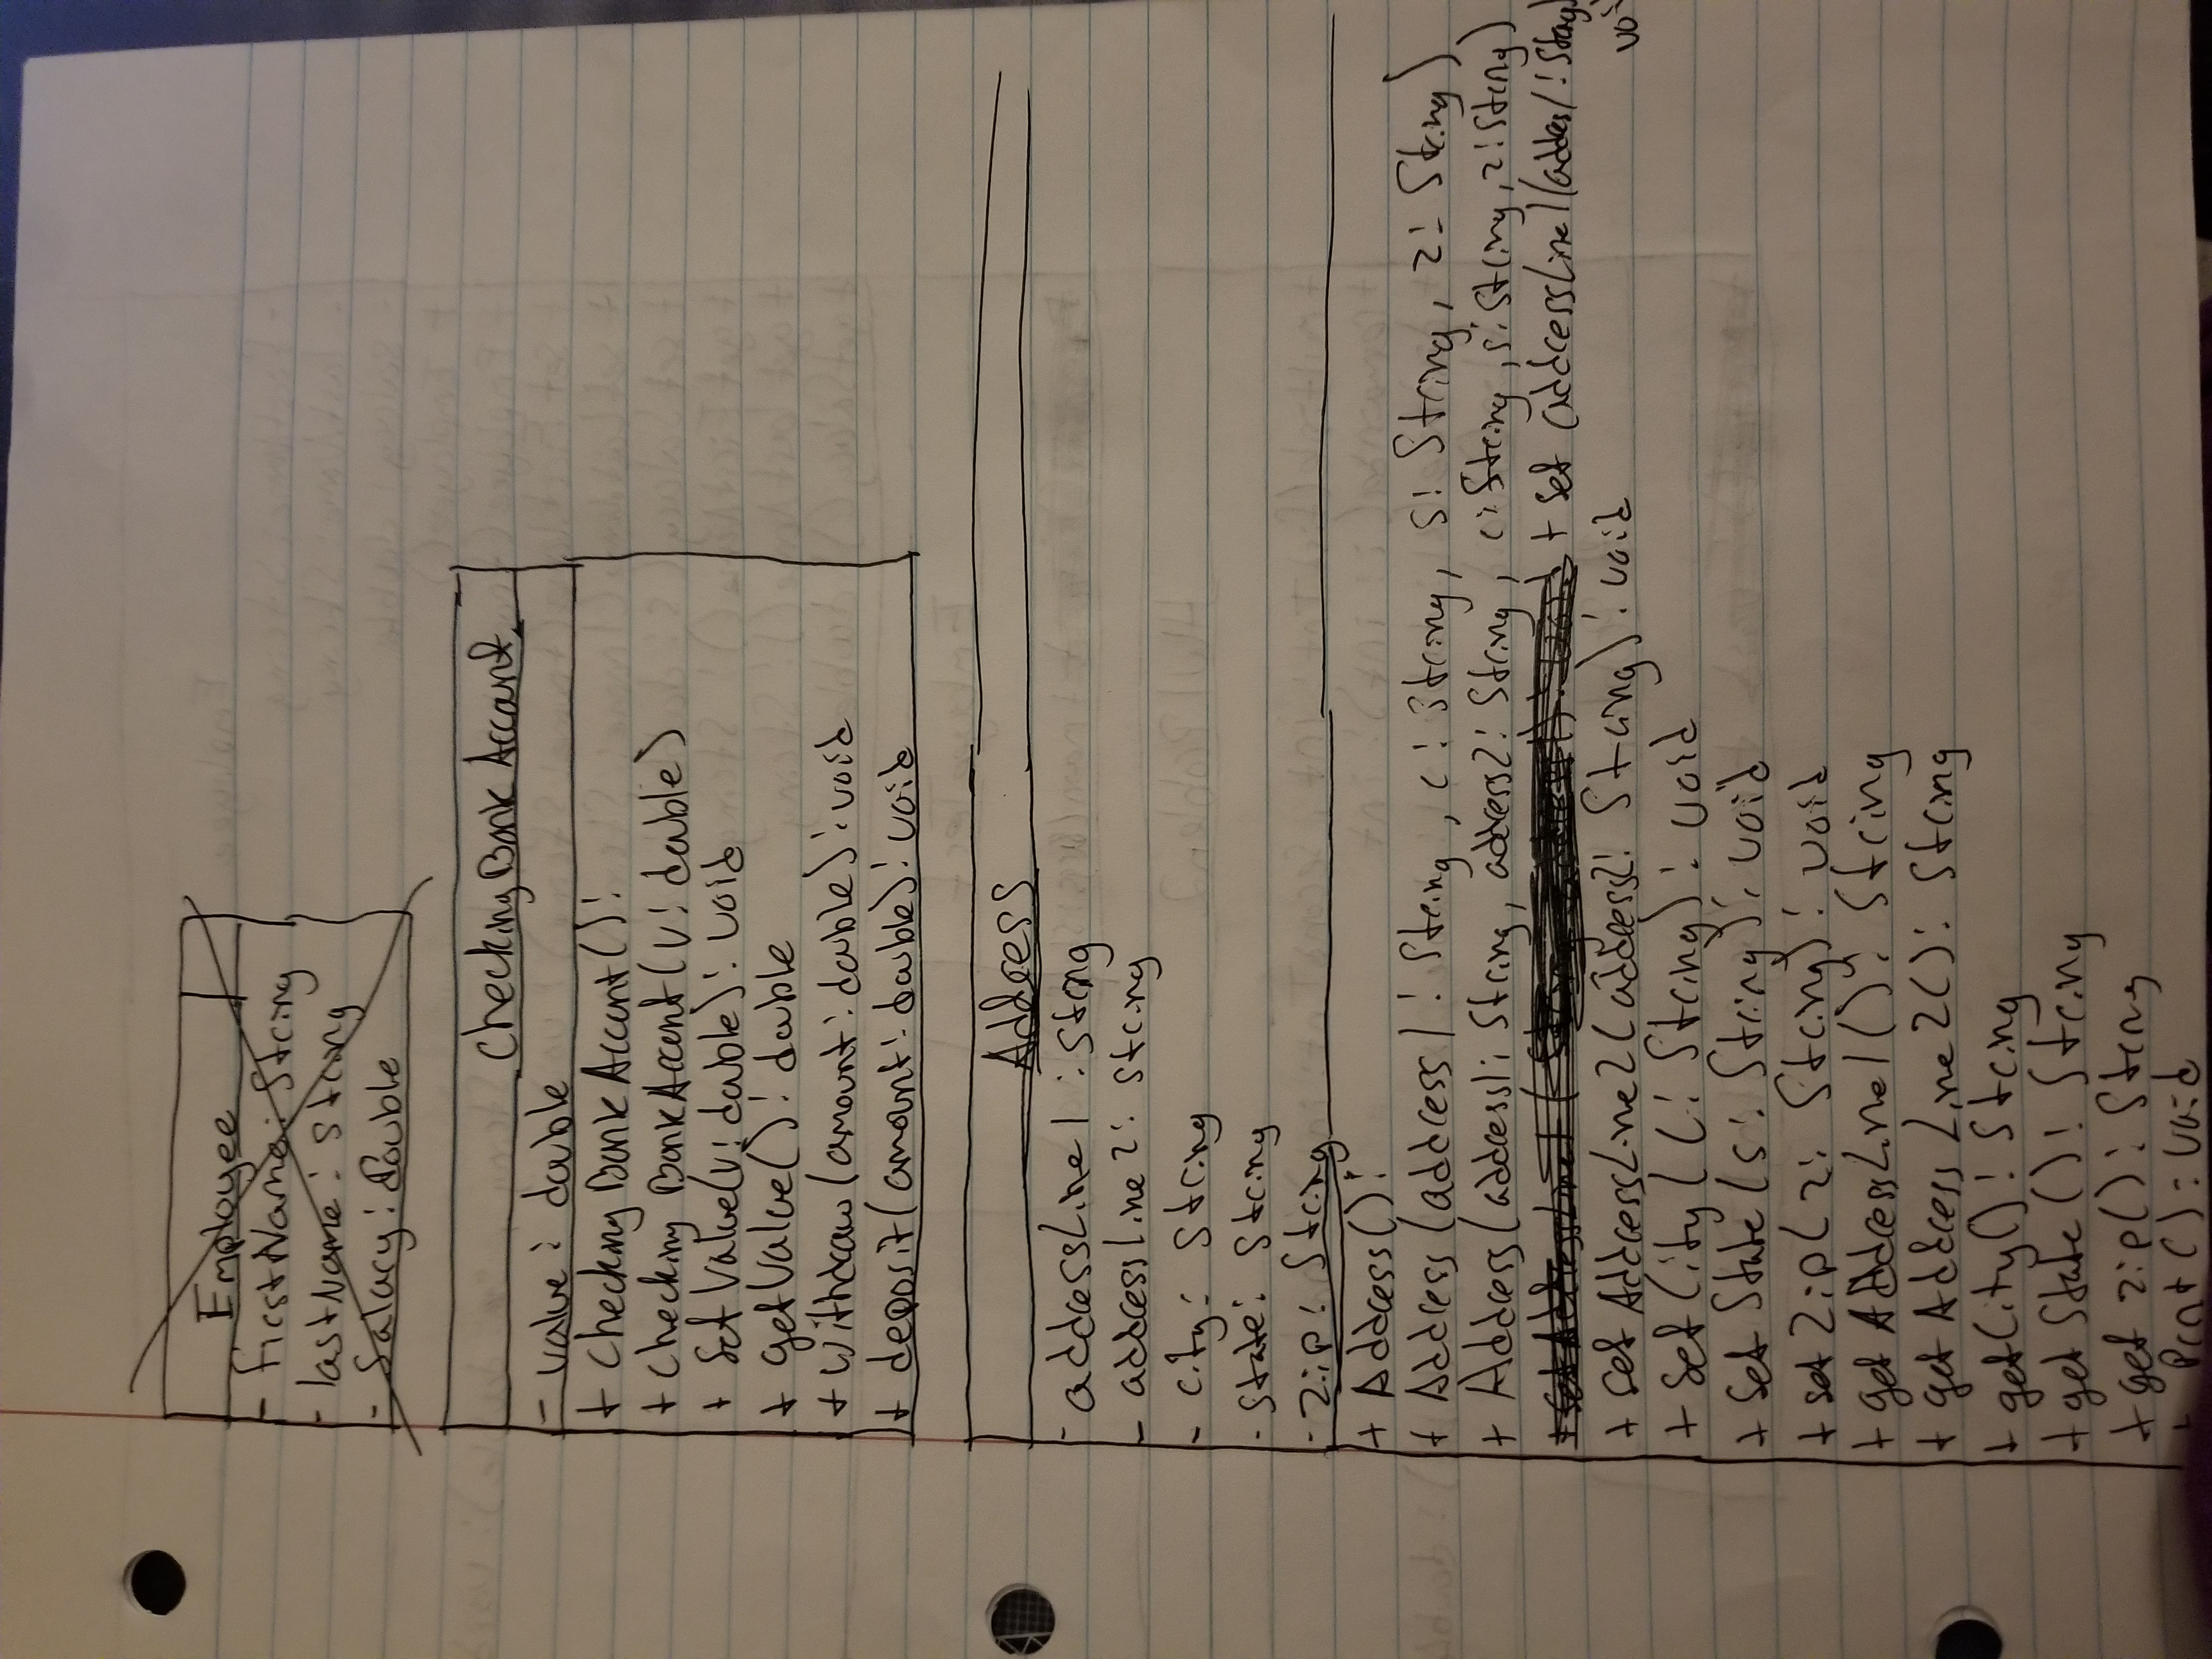 Employee
- firstName: String
- lastName: String
- Salary: double
Checking Bank Account
- value: double
+ Checking Bank Accont():
+ Checking Bank Accont(v: double)
+ Set Value(v: double): void
+ getValue(): double
+ withdraw(amount: double): void
+ deposit(amount: double): void
Address
- addressLine1 : String
- addressLine2: String
- city: String
- State: String
- Zip: String
+ Address():
+ Address(address1: String, c: String, s: String, z: String)
+ Address(address1: String, address2: String, c: String, s: String, z: String)
+ set (addressLine1(addres1: String)
+ set AddressLine2(address2: String): void
+ Set City(c: String): void
+ Set State(s: String): void
+ set Zip(z: String): void
+ get AddressLine1(): String
+ get Address Line2(): String
+ getCity(): String
+ get State(): String
+ get zip(): String
+ Print(): void